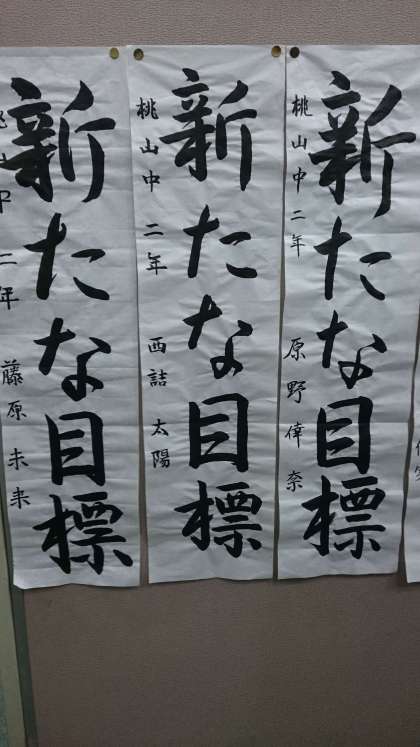 新たな目標
桃山中二年 原野倖奈
新たな目標
桃山中二年 西詰太陽
新たな目標
桃山中二年 藤原未来